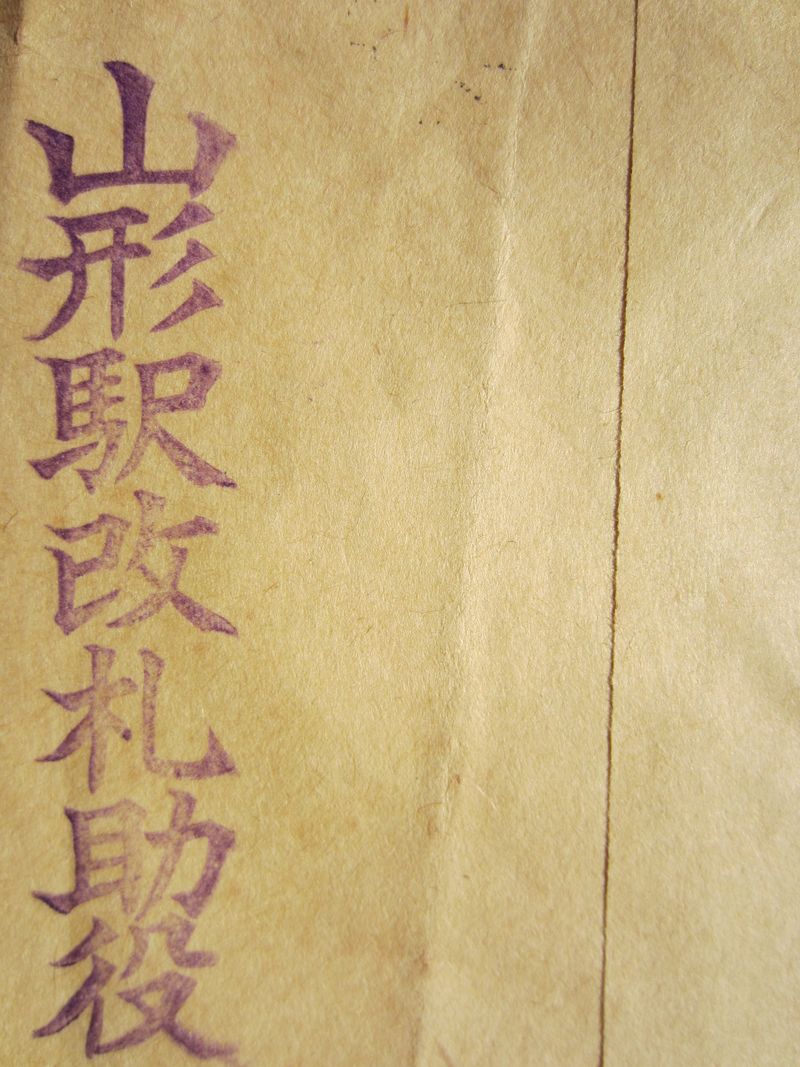 山形駅改札助役